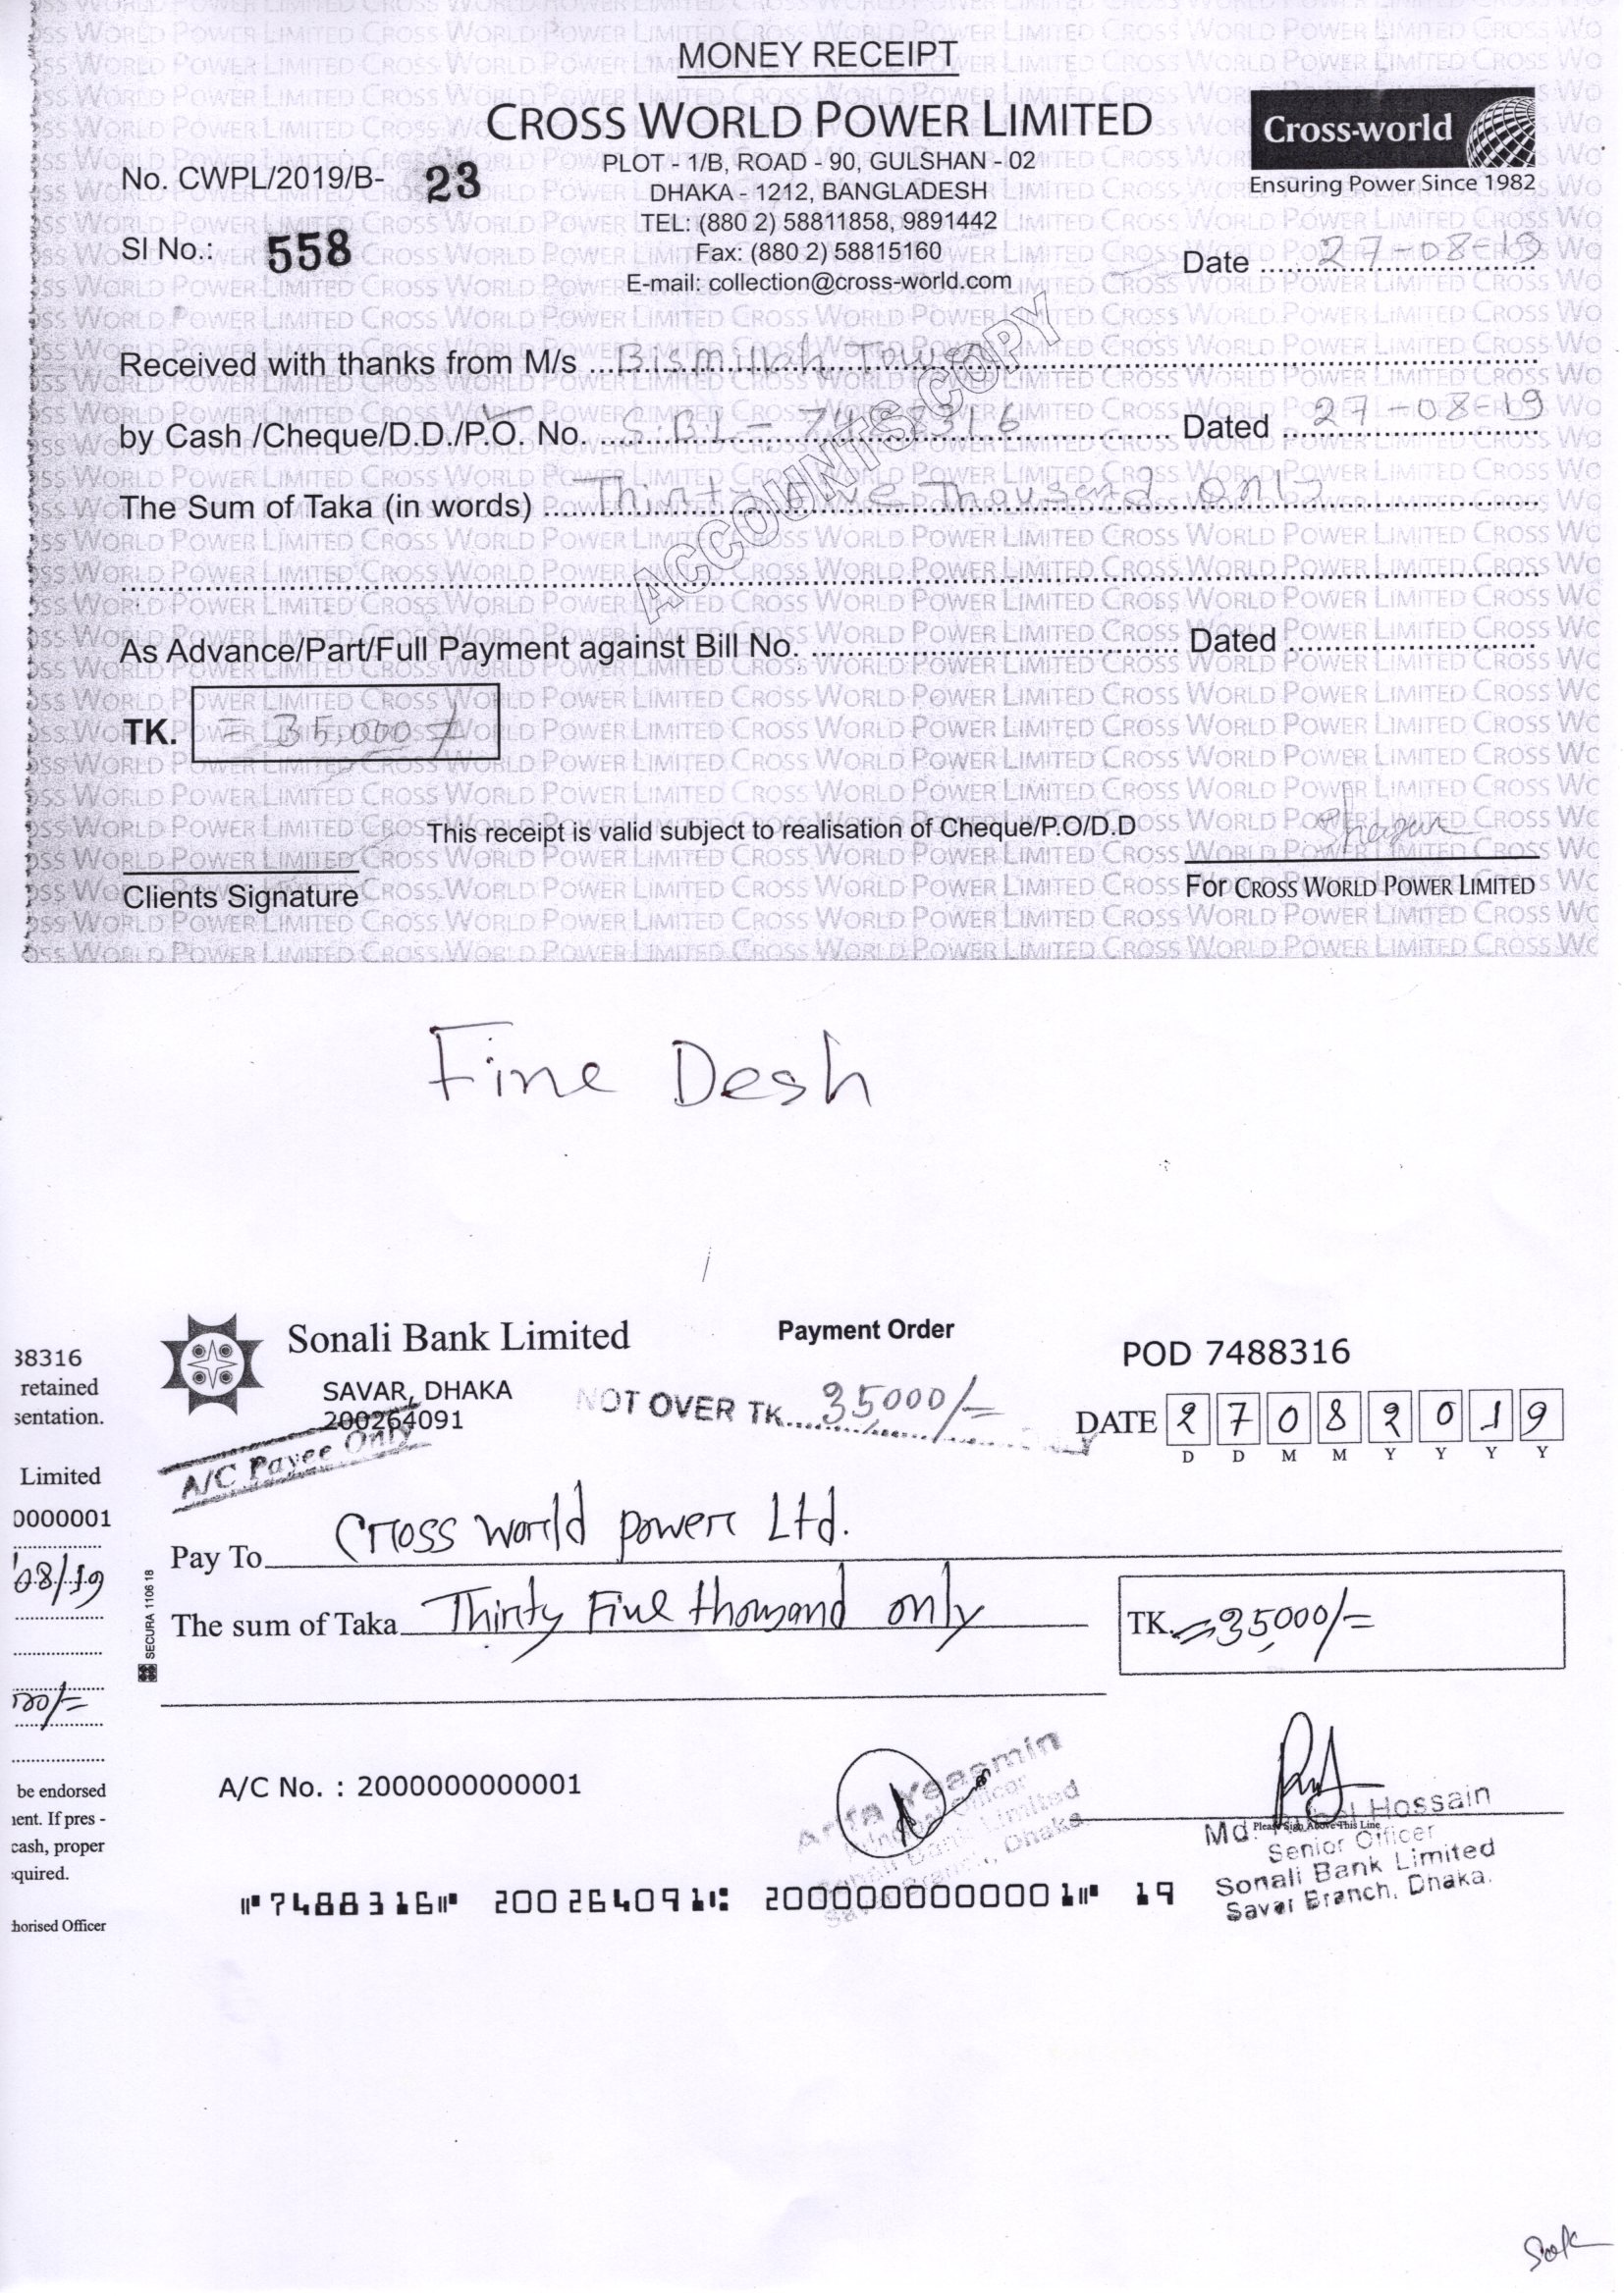 MONEY RECEIPT
CROSS WORLD POWER LIMITED
Cross-world
Ensuring Power Since 1982
PLOT - 1/B, ROAD - 90, GULSHAN - 02
No. CWPL/2019/B- 23
DHAKA - 1212, BANGLADESH
TEL: (880 2) 58811858, 9891442
Sl No.: 558
Fax: (880 2) 58815160
Date 27-08-19
E-mail: collection@cross-world.com
ACCOUNTS COPY
Received with thanks from M/s Bismillah Tower
by Cash /Cheque/D.D./P.O. No. S.B.L - 7488316 Dated 27-08-19
The Sum of Taka (in words) Thirty Five Thousand only
As Advance/Part/Full Payment against Bill No. Dated
TK. = 35,000/
This receipt is valid subject to realisation of Cheque/P.O/D.D
Clients Signature
For CROSS WORLD POWER LIMITED
Fine Desh
Sonali Bank Limited
Payment Order
POD 7488316
SAVAR, DHAKA
200264091
NOT OVER TK. 35000/=
DATE 27082019
D D M M Y Y Y Y
A/C Payee Only
Pay To Cross world power Ltd.
The sum of Taka Thirty Five thousand only
TK. =35,000/=
SECURA 1106 18
A/C No. : 2000000000001
Arifa Yeasmin
Officer
Sonali Bank Limited
Savar Branch, Dhaka
Please Sign Above This Line
Md. Rubel Hossain
Senior Officer
Sonali Bank Limited
Savar Branch, Dhaka.
⑈7488316⑈ 200264091⑆ 2000000000001⑈ 19
38316
retained
sentation.
Limited
0000001
08/19
00/=
be endorsed
ent. If pres -
cash, proper
quired.
horised Officer